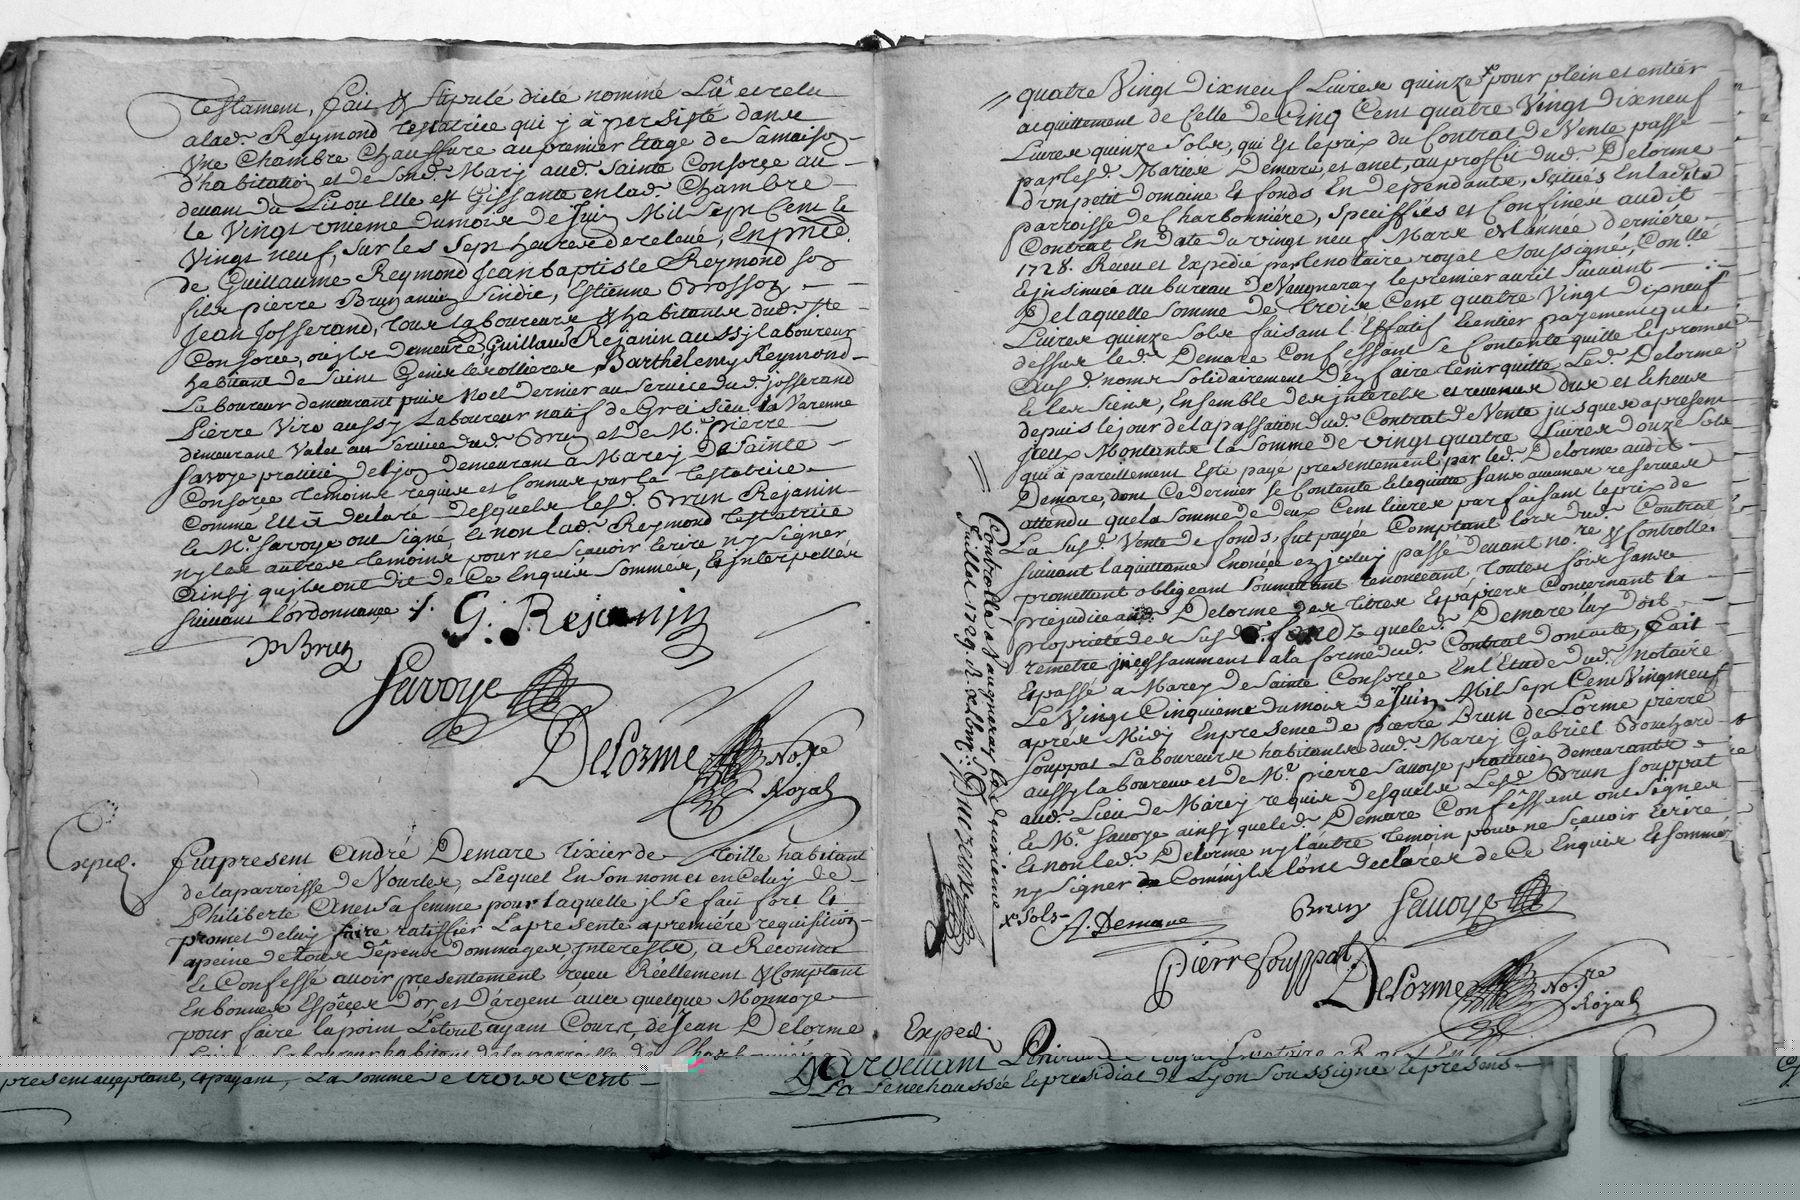 Testament, fait & stipulé dicté nommé Lû et relu
a lad. Reymond testatrice qui y à persisté dans
Une Chambre Chauffure au premier Etage de sa maison
d'habitation et de sond. Mary aud. Sainte Consorce au
devant du Lit ou Elle est Gissante en lad. Chambre
le Vingt unieme du mois de Juin Mil sept Cent &
Vingt neuf, sur les sept heures de relevé, En pnce.
de Guillaume Reymond Jean baptiste Reymond son
fils pierre Brun ancien sindic, Estienne Brosson
Jean Josserand, tous laboureurs & habitants dud. Ste
Consorce, ou ils demeure Guillau. Rejanin aussy laboureur
habitant de saint Genis les ollieres, Barthelemy Reymond
Laboureur demeurant puis Noel dernier au service dud. josserand
Pierre Viro aussy Laboureur natif de Greisieu la Varenne
demeurant Valet au service dud. Brun et de Me. Pierre
Savoye praticien de Lyon demeurant a Marcy de Sainte
Consorce temoins requis et connus par la testatrice
Comme Ell'a declaré desquels lesd. Brun Rejanin
& Me. Savoye ont signé, & non lad. Reymond testatrice
ny les autres temoins pour ne sçavoir Ecrire ny signer
Ainsy qu'ils ont dit de ce Enquis sommés, & interpellés
suivant l'ordonnance ./.
G. Rejanin
P Brun
Savoye
Delorme No.re
Royal
Exped.
Fut present André Demare tixier de toille habitant
de la parroisse de Vourles, Lequel En son nom et en Celuy de
Philiberte Anet sa femme pour laquelle il se fait fort &
promet de luy faire ratiffier La presente a premiere requisition
a peine de tous depens dommages, interests, a Reconnu
& Confessé avoir presentement receu Réellement & Comptant
En bonnes Especes D'or, et D'argent avec quelque Monnoye
pour faire la point Le tout ayant Cours, de Jean Delorme
present acceptant, & payant, La somme de trois Cent
quatre Vingt dixneuf Livres quinze xo pour plein et entier
acquittement de Celle de Cinq Cent quatre Vingt dixneuf
Livres quinze sols, qui Est le prix du Contrat de Vente passé
par lesd. Mariés Demare, et anet, au proffit dud. Delorme
d'un petit Domaine & fonds En dependants, scitués En lad.te
parroisse de Charbonniére, speciffiés et Confinés audit
Contrat En date du vingt neuf Mars de l'année derniére
1728. Receu et Expedié par le notaire royal soussigné, Con.llé
& insinué au bureau de Vaugneray le premier avril suivant
De laquelle somme de trois Cent quatre Vingt dixneuf
Livres quinze sols faisant l'Effatif & entier payement que
dessus led. Demare Confessant se contente quitte & promet
Ausd. noms solidairement D'en faire tenir quitte Led. Delorme
& les siens, Ensemble des interets et revenus dus et Echeus
depuis le jour de la passation dud. Contrat de Vente jusques apresent
Iceux Montants la somme de vingt quatre Livres douze sols
qui à pareillement Esté payé presentement par led. Delorme audit
Demare, dont Ce dernier se contente & le quitte sans aucunes reserves
attendu que la somme de deux Cent livres parfaisant le prix de
La susd. Vente de fonds, fut payée Comptant lors dud. Contrat
suivant la quittance Enoncée en iceluy passé devant no.re & Controllé
promettant obligeant soumettant renonceant, toutes fois sans
prejudice aud. Delorme des titres & papiers Concernant la
proprieté des susd. fonds que led. Demare luy doit
remetre incessamment a la forme dud. Contrat dont acte, Fait
& passé a Marcy de Sainte Consorce En l'Etude dud. Notaire
Le Vingt Cinquieme du mois de Juin Mil sept Cent Vingt neuf
aprés Midy En presence de pierre Brun de Lorme pierre
Souppat Laboureurs habitants dud. Marcy Gabriel Bouchard
aussy laboureur et de Me. pierre Savoye praticien demeurants
aud. Lieu de Marcy requis desquels Lesd. Brun Souppat
& Me. Savoye ainsy que led. Demare Confessant ont signés
& non led. Delorme ny l'autre temoin pour ne sçavoir Ecrire
ny signer Comm'ils l'ont declarés de Ce Enquis & sommés
xo sols
A. Demare
Brun
Savoye
Pierre Souppat
Delorme No.re
Royal
Controllé a Vaugneray le quinzieme
Juillet 1729.
Exped.
Pardevant
La Senechaussée & presidial de Lyon soussigné & presens